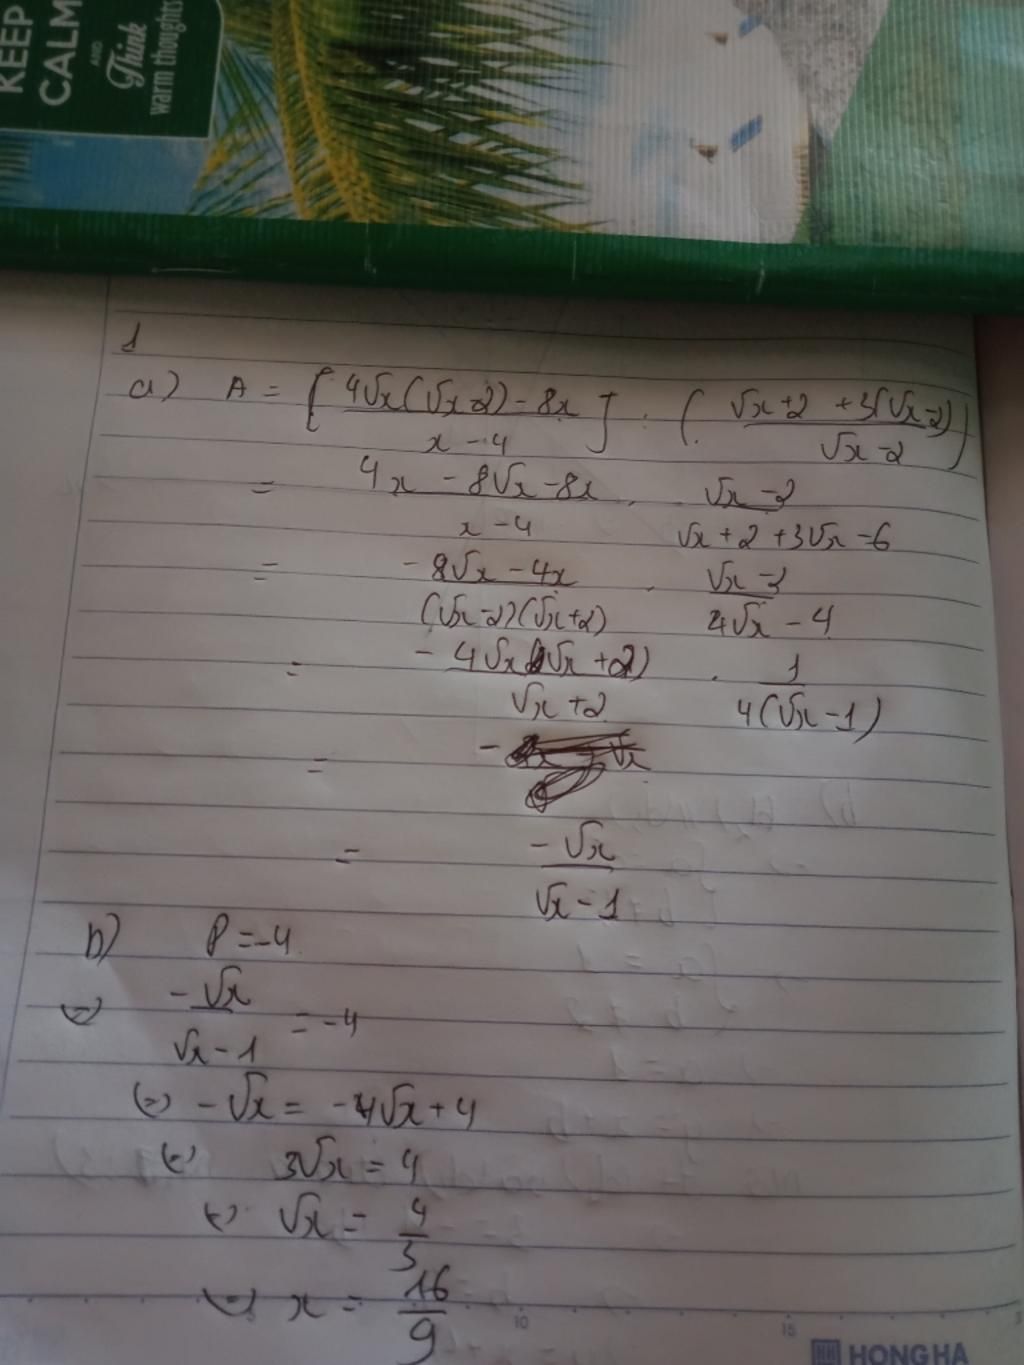 KEEP
CALM
AND
Think
warm thoughts
1
a) A = [ (4√x(√x-2) - 8x) / (x - 4) ] : ( (√x+2 + 3(√x-2)) / (√x-2) )
= (4x - 8√x - 8x) / (x - 4) . (√x - 2) / (√x + 2 + 3√x - 6)
= (-8√x - 4x) / ((√x-2)(√x+2)) . (√x - 2) / (4√x - 4)
= - 4√x(√x + 2) / (√x + 2) . 1 / (4(√x - 1))
=
= -√x / (√x - 1)
b) P = -4
(=) -√x / (√x - 1) = -4
(=) -√x = -4√x + 4
(=) 3√x = 4
(=) √x = 4/3
(=) x = 16/9
10
15
HH HONG HA